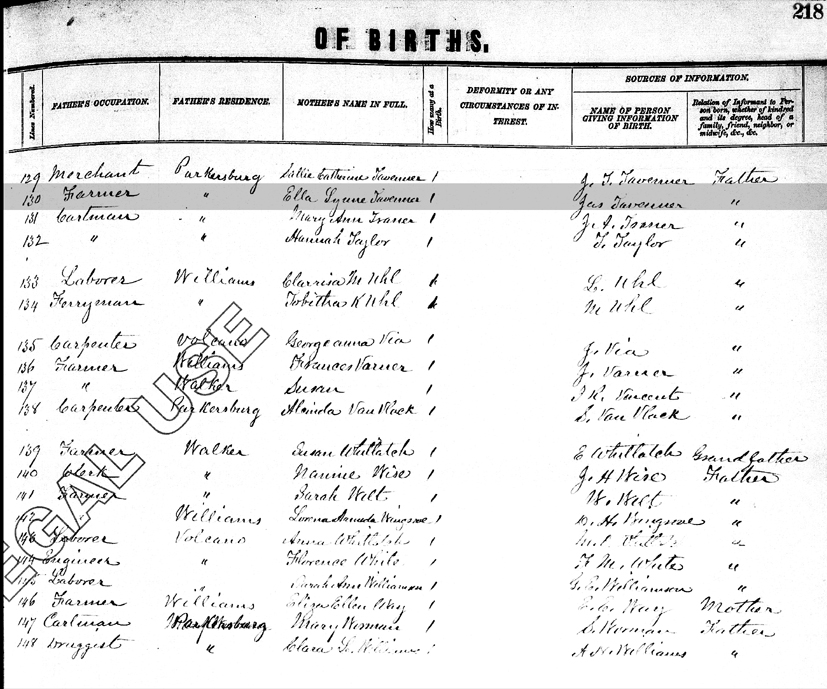 218
OF BIRTHS.
Lines Numbered. FATHER'S OCCUPATION. FATHER'S RESIDENCE. MOTHER'S NAME IN FULL. How many at a Birth. DEFORMITY OR ANY CIRCUMSTANCES OF INTEREST. SOURCES OF INFORMATION.
NAME OF PERSON GIVING INFORMATION OF BIRTH. Relation of Informant to Person born, whether of kindred and its degree, head of a family, friend, neighbor, or midwife, &c., &c.
129 Merchant Parkersburg Catherine Tavenner 1 J. T. Tavenner Father
130 Farmer " Ella Lynne Tavenner 1 Jas Tavenner "
131 Cartman " Mary Ann Traner 1 J. A. Traner "
132 " " Hannah Taylor 1 T. Taylor "
133 Laborer Williams Clarrisa M Uhl L. Uhl "
134 Ferryman " Tobitha K Uhl M Uhl "
135 Carpenter Volcano Georgeanna Via 1 J. Via "
136 Farmer Williams Frances Varner 1 J. Varner "
137 " Walker Susan 1 J R. Vincent "
138 Carpenter Parkersburg Alminda Van Vlack 1 S. Van Vlack "
139 Farmer Walker Susan Whitlatch 1 E Whitlatch Grandfather
140 Clerk " Nannie Wise 1 J. H Wise Father
141 Farmer " Sarah Wilt 1 W. Wilt "
142 Williams Lurena Wingrove 1 H. Wingrove "
143 Laborer Volcano Anna Whitlatch 1 "
144 Engineer " Florence White 1 F. M. White "
145 Laborer " Sarah Ann Williamson 1 G. C. Williamson "
146 Farmer Williams Eliza Ellen Way 1 Way Mother
147 Cartman Parkersburg Mary Woman 1 S. Woman Father
148 Druggist " Clara Williams A. Williams "
LEGAL USE